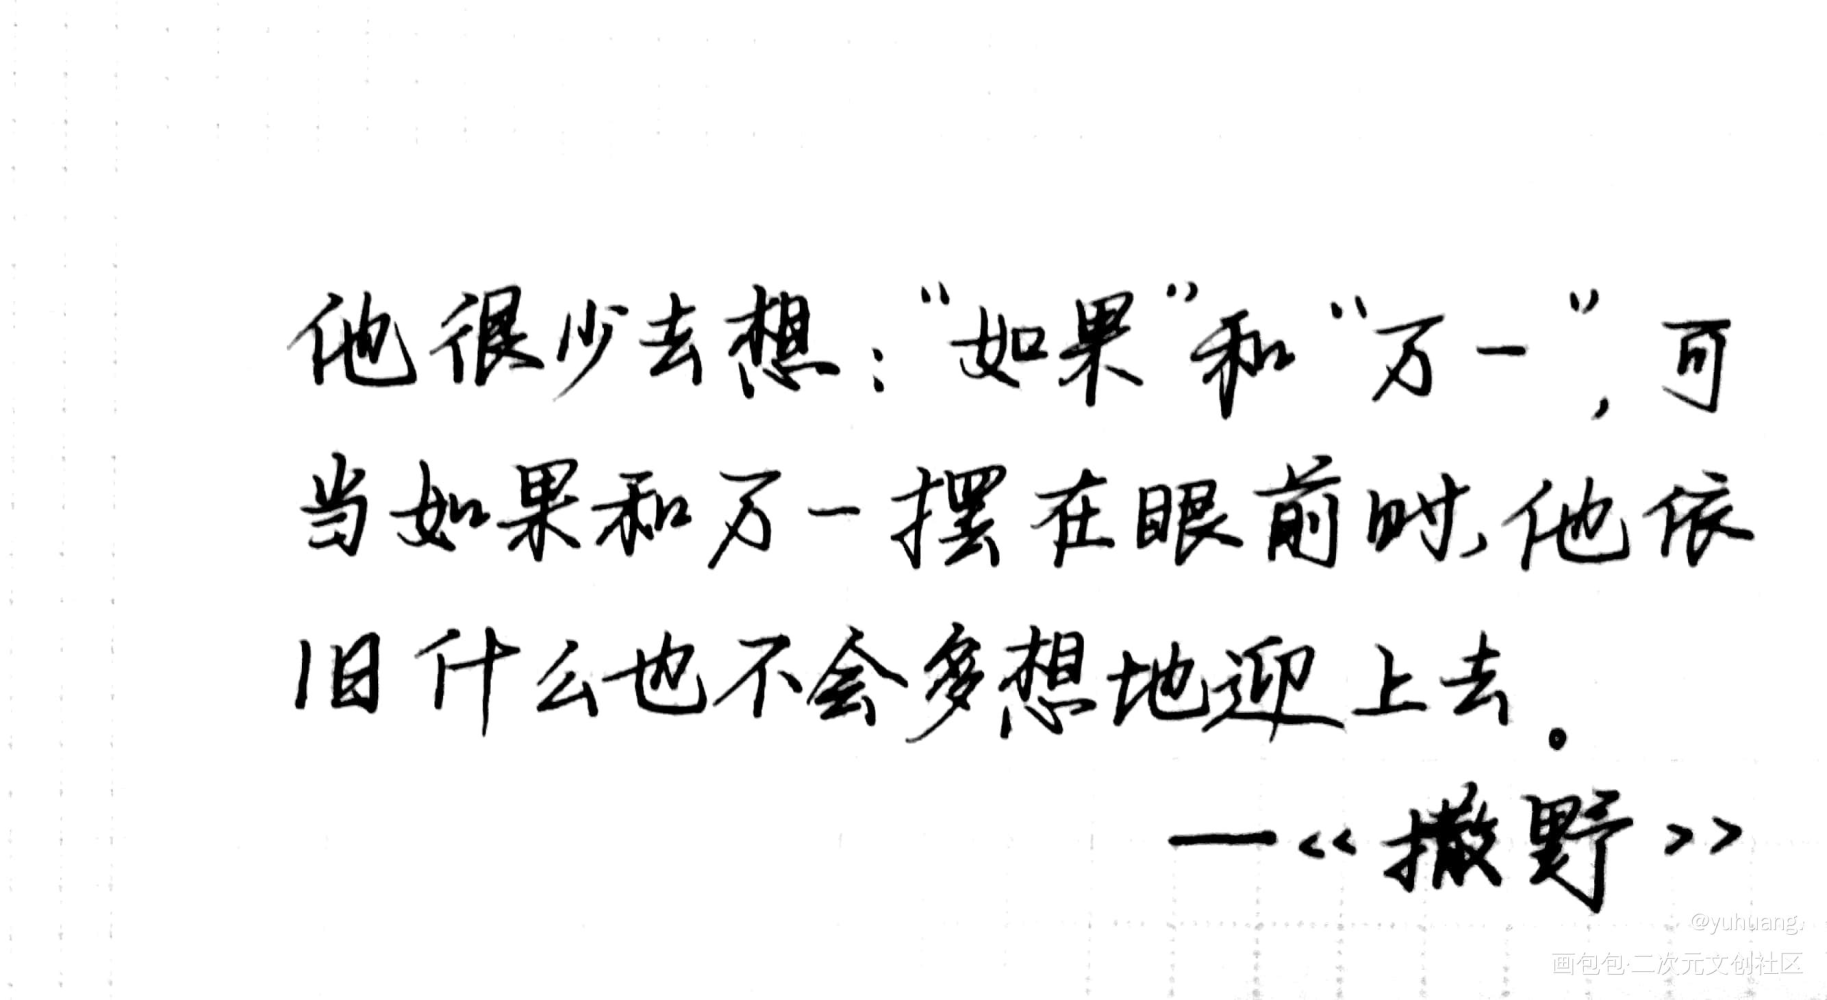 他很少去想：“如果”和“万一”，可
当如果和万一摆在眼前时，他依
旧什么也不会多想地迎上去。
—《撒野》
@yuhuang.
画包包·二次元文创社区